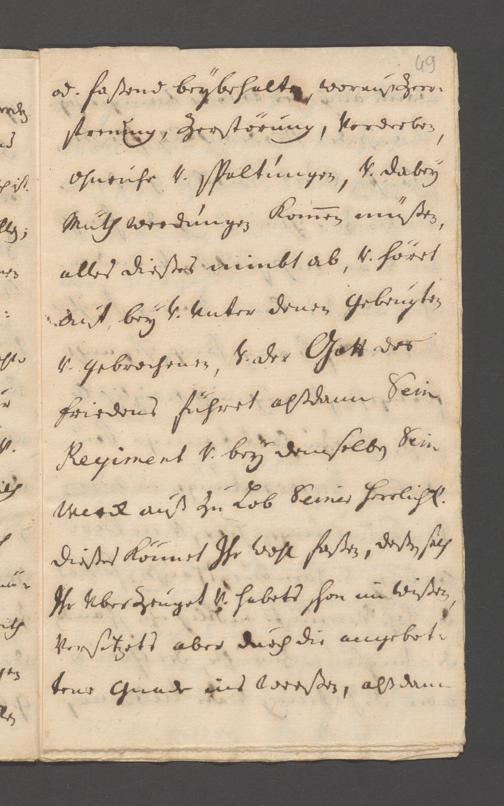 49
od. hassend beybehalten, worauß Zer-
störung, Zerstörung, Verderben,
Unruhe v. Spaltungen, v. dabey
Muthwerdungen kommen müßen,
alles dieses nimbt ab, v. höret
auf, bey v. unter denen gebeugten
v. gebrochenen, v. der Gott des
friedens führet alßdann Sein
Regiment v. bey denselben Sein
Werck auß zu Lob Seiner Herrlichk.
dieses könnet Ihr wohl faßen, deßen seyd
Ihr überzeuget v. habets schon im wißen,
Versetzets aber durch die angebot-
tene Gnade ins weesen, alßdann